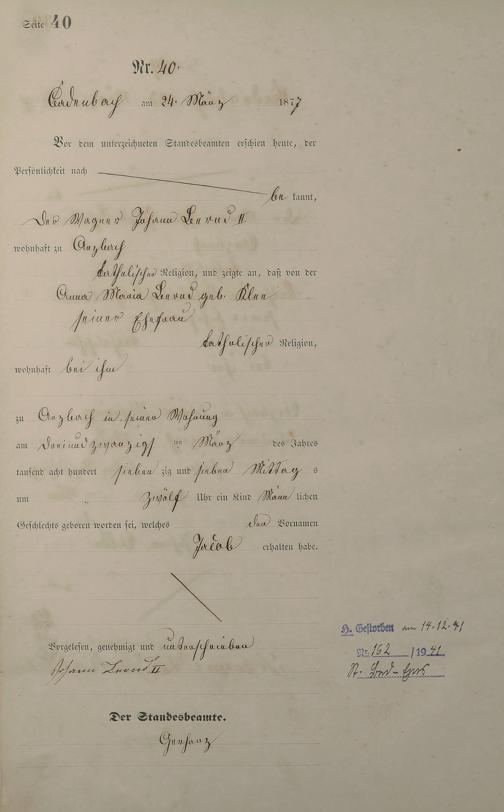 Seite 40
Nr. 40.
Cadenbach am 24. März 1877
Vor dem unterzeichneten Standesbeamten erschien heute, der
Persönlichkeit nach
be kannt,
der Wagner Johann II
wohnhaft zu Arzbach
katholischer Religion, und zeigte an, daß von der
Anna Maria geb. Klee
seiner Ehefrau
katholischer Religion,
wohnhaft bei ihm
zu Arzbach in seiner Wohnung
am dreiundzwanzigst en März des Jahres
tausend acht hundert sieben zig und sieben Mittag s
um zwölf Uhr ein Kind Männ lichen
Geschlechts geboren worden sei, welches den Vornamen
Jacob erhalten habe.
Vorgelesen, genehmigt und unterschrieben
Johann II
Der Standesbeamte.
H. Gestorben am 14.12.41
Nr. 162 /1941
St.